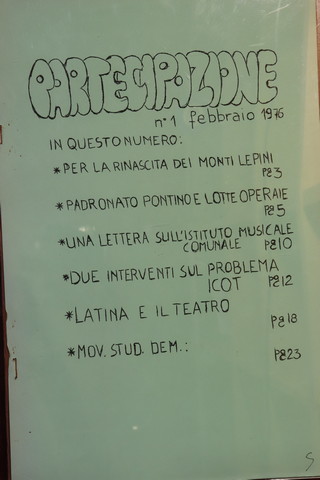 PARTECIPAZIONE
n°1 febbraio 1976
IN QUESTO NUMERO:
*PER LA RINASCITA DEI MONTI LEPINI
Pg3
*PADRONATO PONTINO E LOTTE OPERAIE
Pg5
*UNA LETTERA SULL'ISTITUTO MUSICALE
COMUNALE Pg10
*DUE INTERVENTI SUL PROBLEMA
ICOT Pg12
*LATINA E IL TEATRO
Pg18
*MOV. STUD. DEM.:
Pg23
S